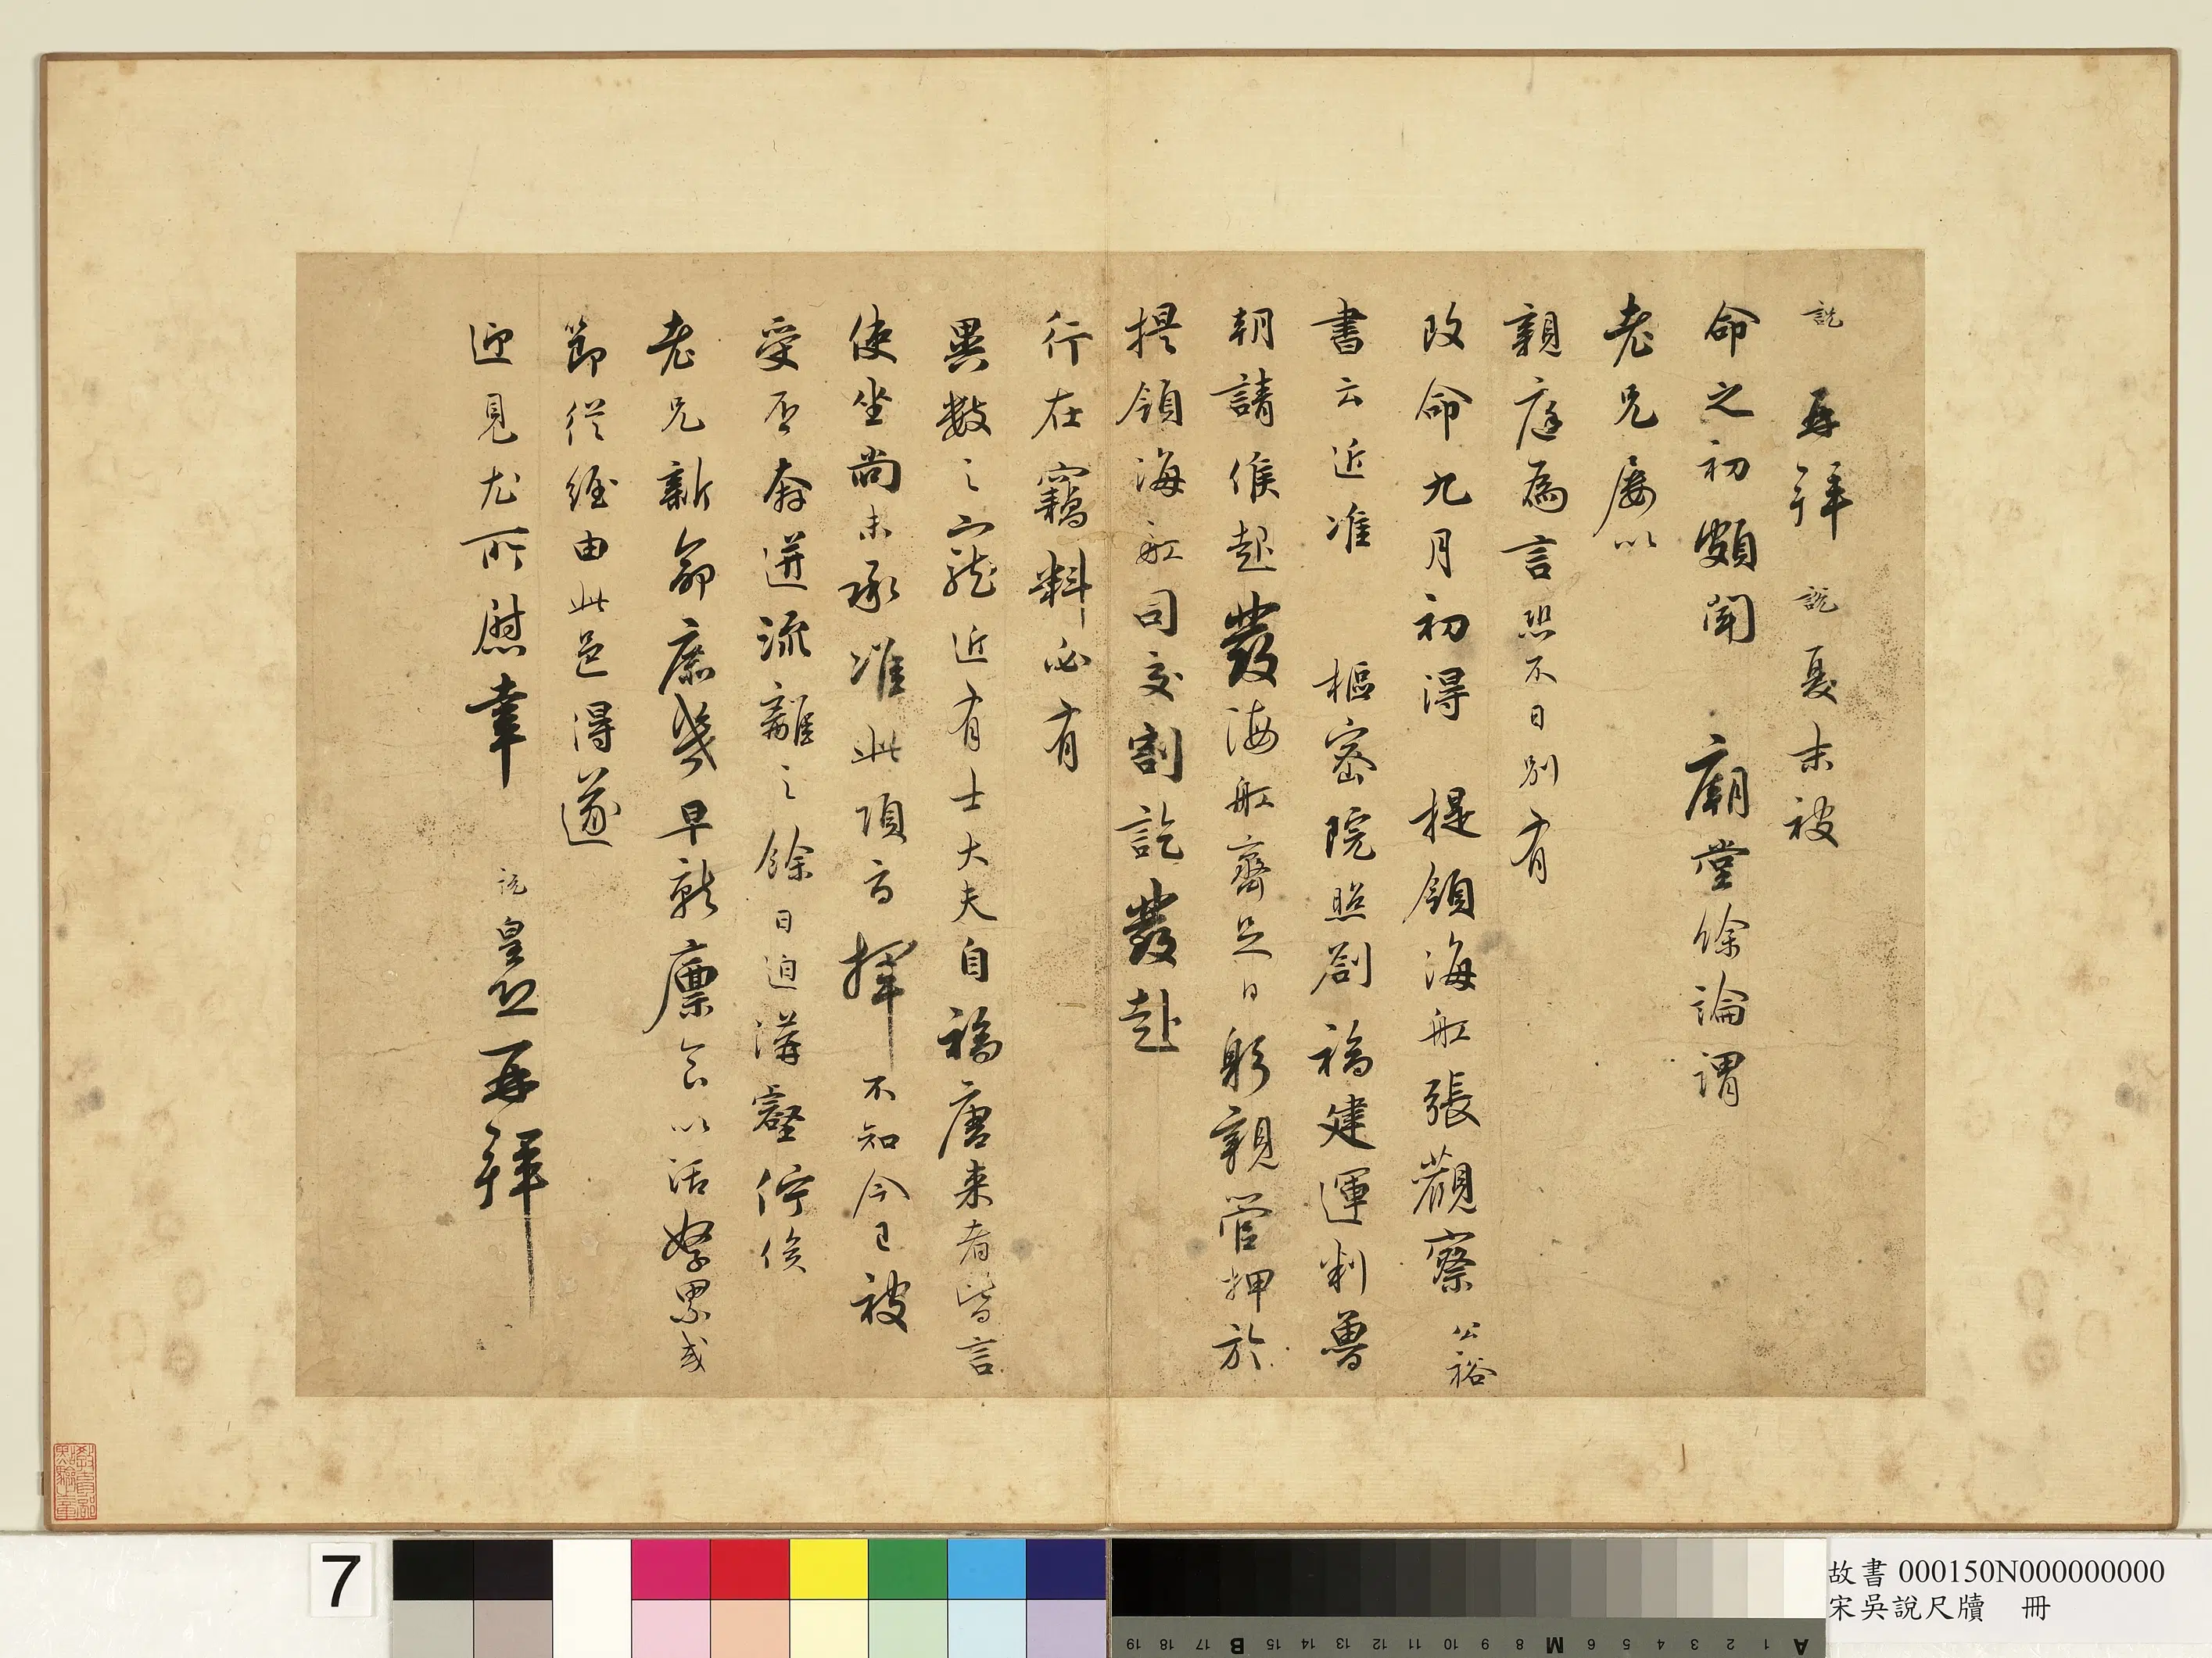 說再拜說夏末被
命之初頗聞 廟堂餘論謂
老兄屢以
親庭為言恐不日別有
改命九月初得 提領海舡張觀察公裕
書云近准 樞密院照劄福建運判魯
朝請候起發海舡齊足日躬親管押於
提領海舡司交割訖發赴
行在竊料必有
異數之寵近有士大夫自福唐來者皆言
使坐尚未承准此項高擇不知今已被
受否奔迸流離之餘日迫溝壑佇俟
老兄新命庶幾早就廩食以活孥累或
節從經由此邑得遂
迎見尤所慰幸 說皇恐再拜
7
故書 000150N000000000
宋吳說尺牘 冊
A 1 2 3 4 5 6 M 8 9 10 11 12 13 14 15 B 17 18 19